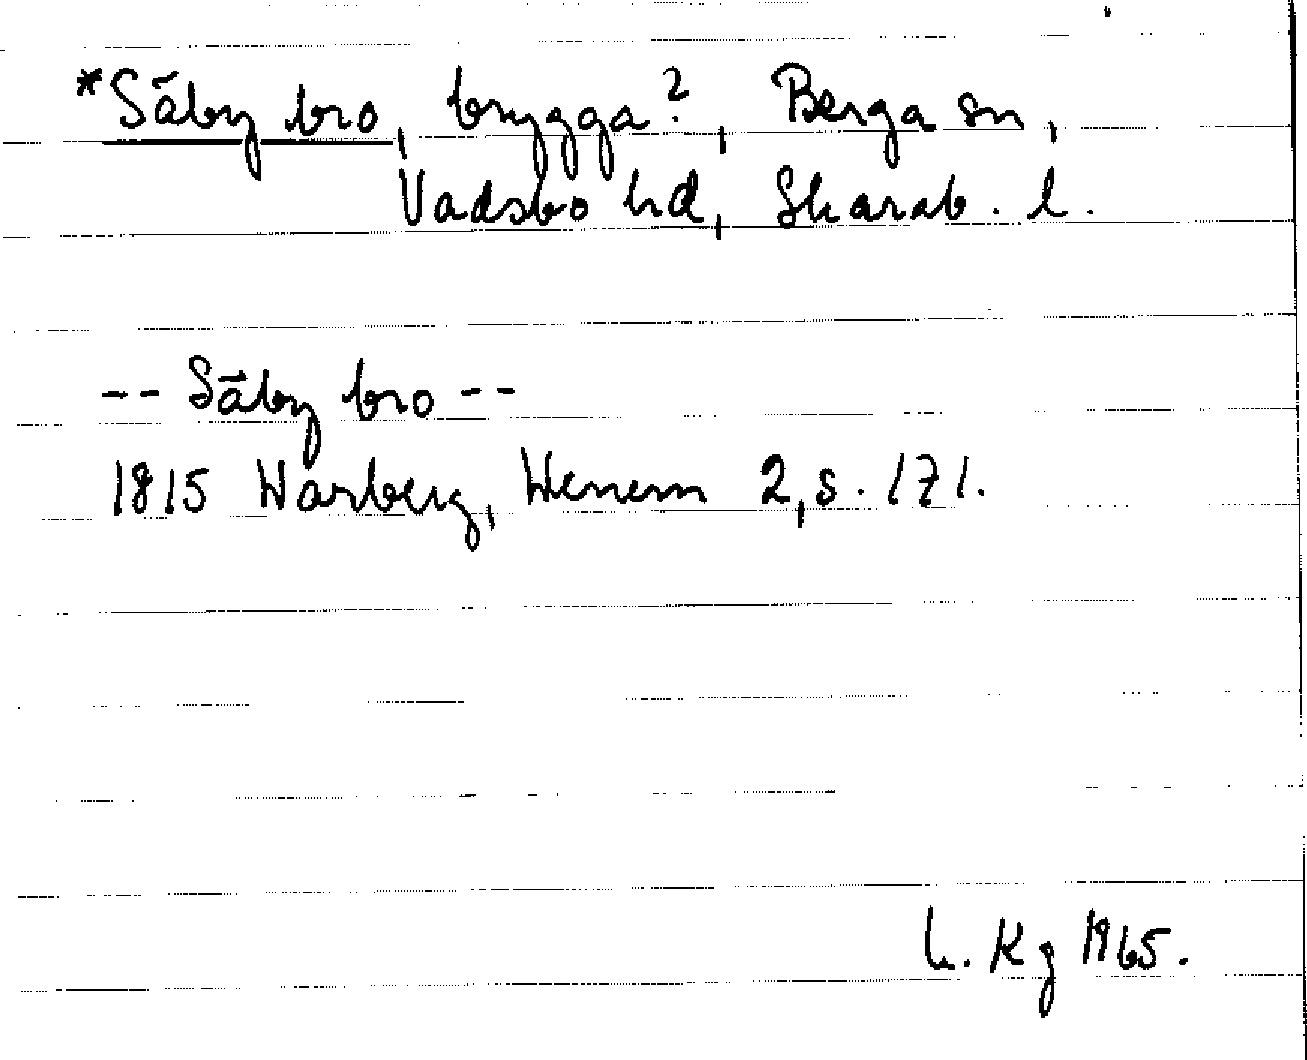 *Säby bro, brygga?, Berga sn,
Vadsbo hd, Skarab. l.
-- Säby bro --
1815 Warberg, Wenern 2, s. 171.
L. Kg 1965.